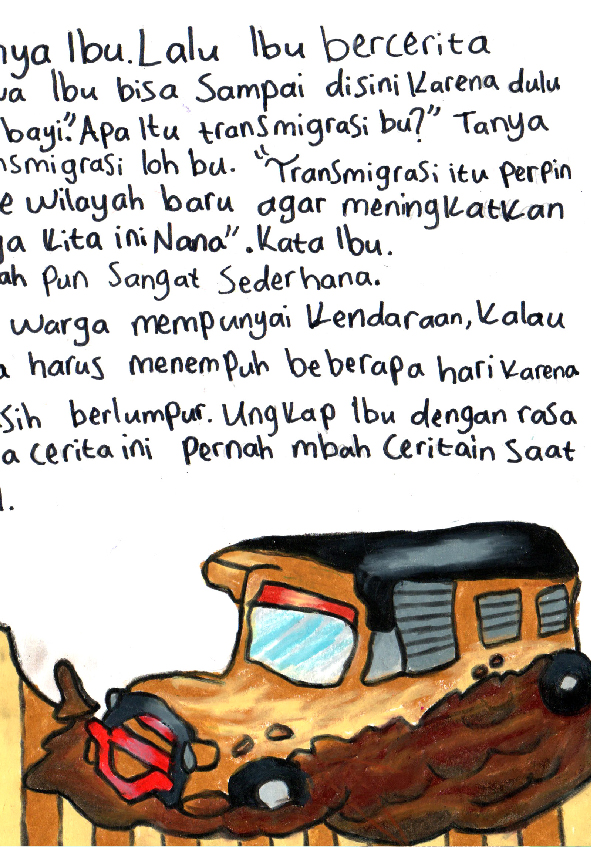 nya Ibu. Lalu Ibu bercerita
wa Ibu bisa Sampai disini Karena dulu
bayi". "Apa Itu transmigrasi bu?" Tanya
nsmigrasi loh bu. "Transmigrasi itu perpin
e wilayah baru agar meningkatkan
ga Kita ini Nana". Kata Ibu.
ah Pun Sangat Sederhana.
warga mempunyai Kendaraan, Kalau
a harus menempuh beberapa hari Karena
sih berlumpur. Ungkap Ibu dengan rasa
a cerita ini Pernah mbah Ceritain Saat
l.